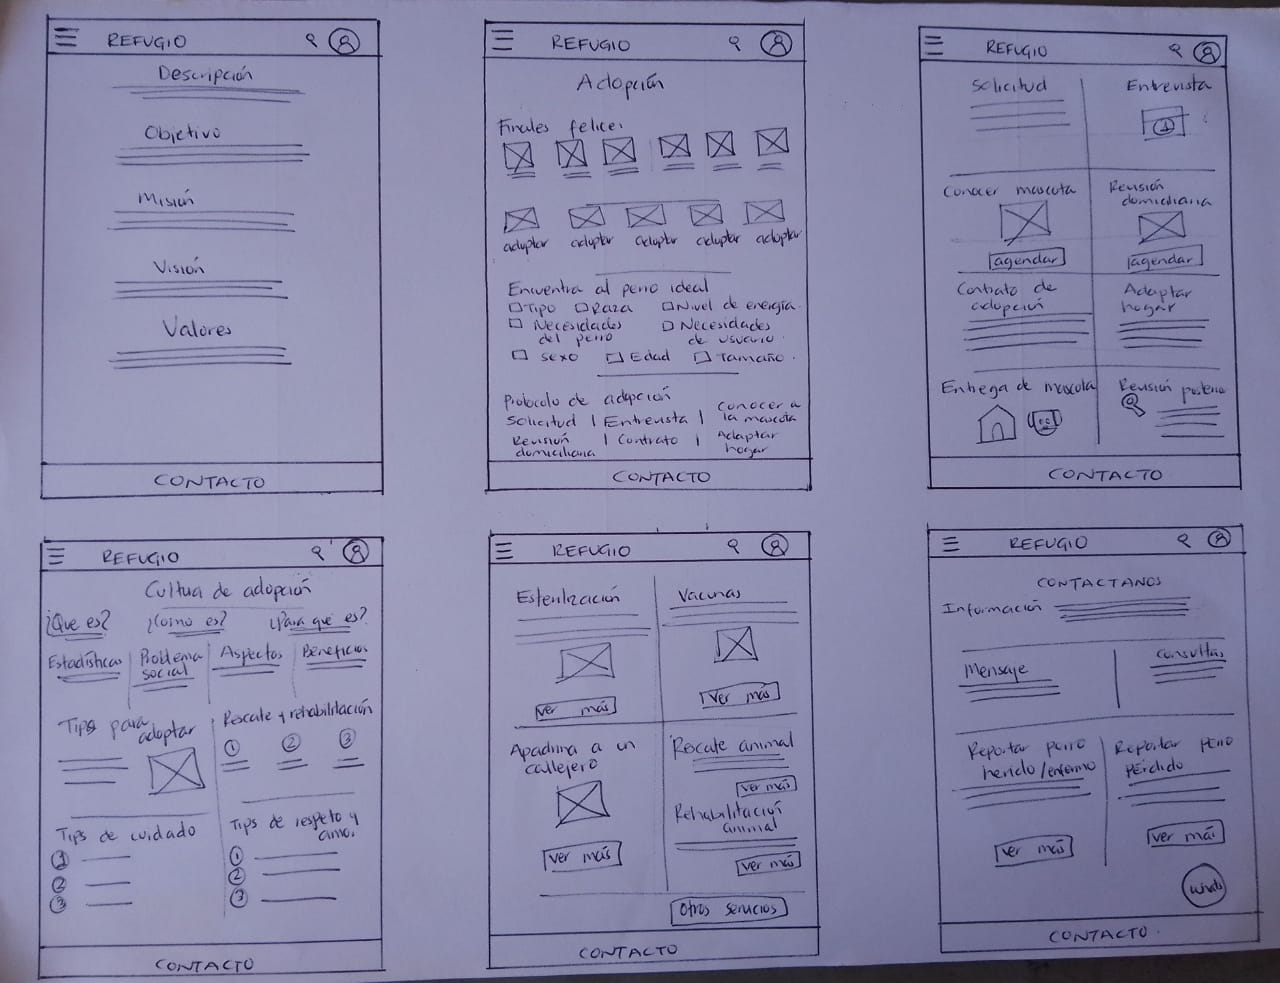 REFUGIO
Descripción
Objetivo
Misión
Visión
Valores
CONTACTO
REFUGIO
Adopción
Finales felices
adoptar adoptar adoptar adoptar adoptar
Encuentra al perro ideal
Tipo Raza Nivel de energía
Necesidades del perro Necesidades de usuario
Sexo Edad Tamaño
Protocolo de adopción
Solicitud | Entrevista | Conocer a la mascota
Revisión domiciliaria | Contrato | Adaptar hogar
CONTACTO
REFUGIO
Solicitud Entrevista
Conocer mascota Revisión domiciliaria
agendar agendar
Contrato de adopción Adaptar hogar
Entrega de mascota Revisión
CONTACTO
REFUGIO
Cultura de adopción
¿Que es? ¿Como es? ¿Para qué es?
Estadísticas Problema social Aspectos Beneficios
Tips para adoptar Rescate y rehabilitación
1 2 3
Tips de cuidado Tips de respeto y amor
1 1
2 2
3 3
CONTACTO
REFUGIO
Esterilización Vacunas
ver más ver más
Apadrina a un callejero Rescate animal
ver más
Rehabilitación animal
ver más ver más
Otros servicios
CONTACTO
REFUGIO
CONTACTANOS
Información
Mensaje Consultas
Reportar perro herido/enfermo Reportar perro pérdido
ver más ver más
CONTACTO